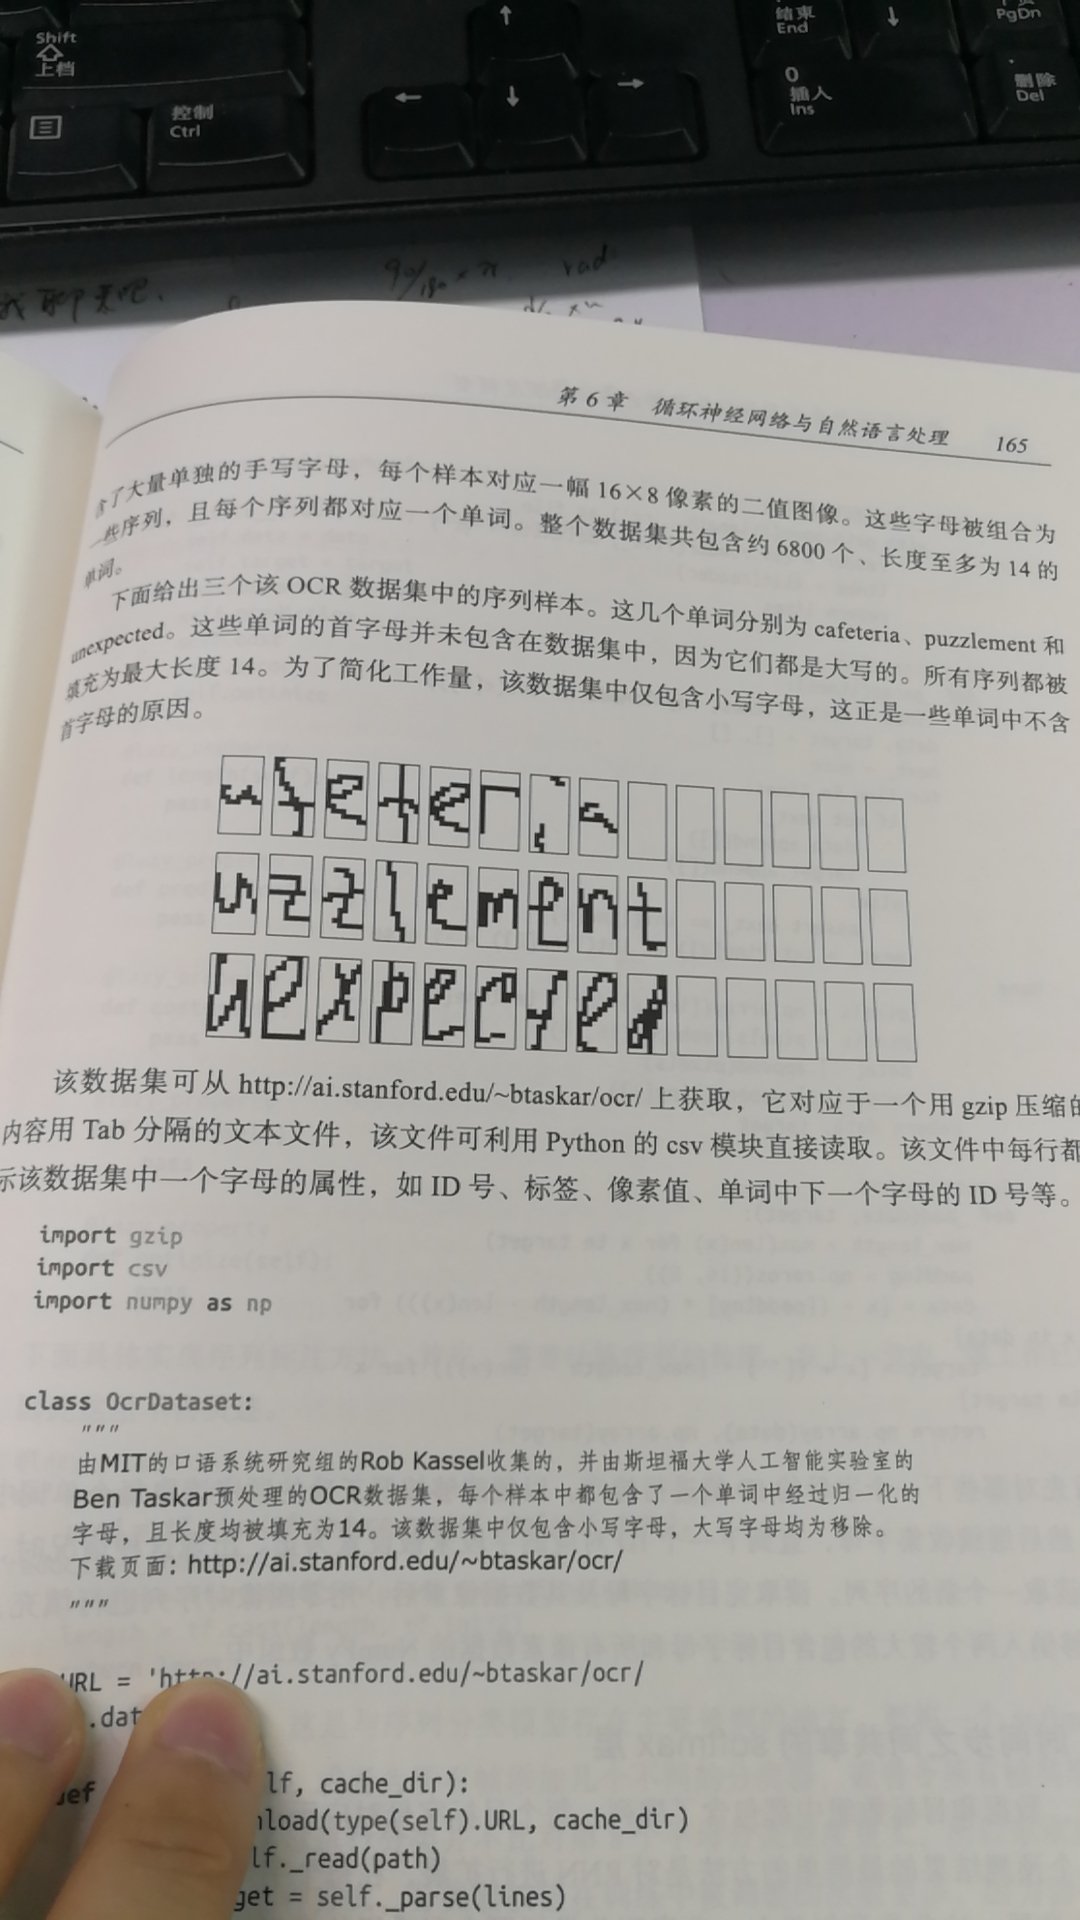 Shift
上档
控制
Ctrl
↑
←
↓
→
结束
End
↓
PgDn
0
插入
Ins
删除
Del
rad
第 6 章 循环神经网络与自然语言处理 165
含了大量单独的手写字母，每个样本对应一幅 16×8 像素的二值图像。这些字母被组合为
一些序列，且每个序列都对应一个单词。整个数据集共包含约 6800 个、长度至多为 14 的
单词。
下面给出三个该 OCR 数据集中的序列样本。这几个单词分别为 cafeteria、puzzlement 和
unexpected。这些单词的首字母并未包含在数据集中，因为它们都是大写的。所有序列都被
填充为最大长度 14。为了简化工作量，该数据集中仅包含小写字母，这正是一些单词中不含
首字母的原因。
afeteria
uzzlement
nexpected
该数据集可从 http://ai.stanford.edu/~btaskar/ocr/ 上获取，它对应于一个用 gzip 压缩的
内容用 Tab 分隔的文本文件，该文件可利用 Python 的 csv 模块直接读取。该文件中每行都
示该数据集中一个字母的属性，如 ID 号、标签、像素值、单词中下一个字母的 ID 号等。
import gzip
import csv
import numpy as np
class OcrDataset:
"""
由MIT的口语系统研究组的Rob Kassel收集的，并由斯坦福大学人工智能实验室的
Ben Taskar预处理的OCR数据集，每个样本中都包含了一个单词中经过归一化的
字母，且长度均被填充为14。该数据集中仅包含小写字母，大写字母均为移除。
下载页面: http://ai.stanford.edu/~btaskar/ocr/
"""
URL = 'http://ai.stanford.edu/~btaskar/ocr/
.dat
def lf, cache_dir):
nload(type(self).URL, cache_dir)
lf._read(path)
get = self._parse(lines)